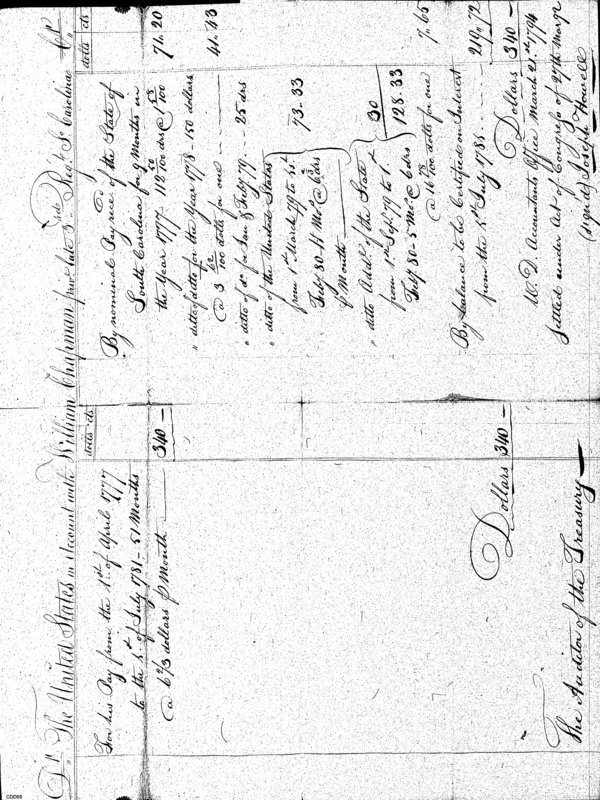 Dr. The United States in Account with William Chapman priv. late 3d Regt. So. Carolina Cr.
dolls cts
For his Pay from the 1st of April 1777
to the 1st of July 1781 - 51 Months
@ 6 2/3 dollars p Month 340 -
Dollars 340 -
The Auditor of the Treasury
dolls cts
By nominal Pay recd of the State of
South Carolina for 9 Months in
the Year 1777 112 50/100 drs @ 1 53/100 71.20
" ditto of ditto for the Year 1778 - 150 dollars
@ 3 62/100 dolls for one 41.43
" ditto of do for Jan & Feby 79 25 drs
" ditto of the United States
from 1st March 79 to 1st
Feby 80 - 11 Mo @ 6 2/3 drs
p Month 73.33
" ditto Addl of the State
from 1st Sept 79 to 1
Feby 80 - 5 Mo @ 6 drs 30
128.33
@ 16 78/100 dolls for one 7.65
By balance to be Certified on Interest
from the 1st July 1781 219.72
Dollars 340 -
W. D. Accountants Office March 21st 1794
Settled under Act of Congress of 27th March
(signed) Joseph Howell
CDD05